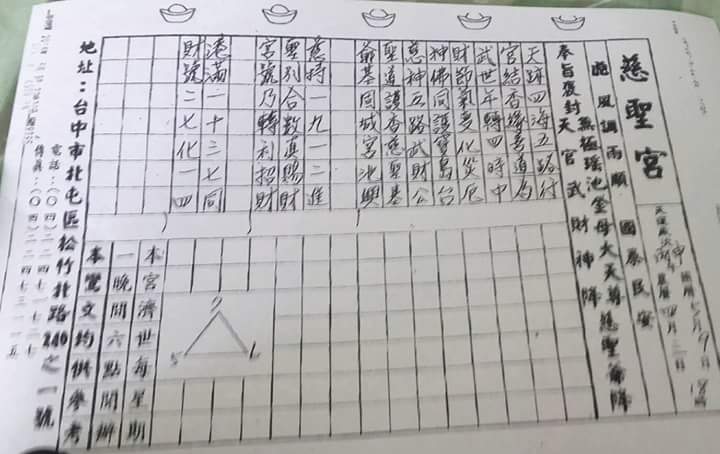 慈聖宮
風調雨順 國泰民安
無極瑤池金母大天尊慈聖爺降
奉旨褒封天官武財神降
天跡四海五路行
官結香緣善道為
武世年轉四時中
財節氣變化災厄
神佛同護寶島台
慈神五路武財公
聖道護香慈聖基
爺基同城宮池興
慈時一九一二進
聖列合數真賜財
宮號乃轉利招財
港滿一十三七同
財號二七化一四
本宮濟世每星期
一晚間六點開辦
本鸞文均供參考
地址：台中市北屯區松竹北路240之一號
電話：(○四)二二四七一七二七
傳真：(○四)二二四七三一一五